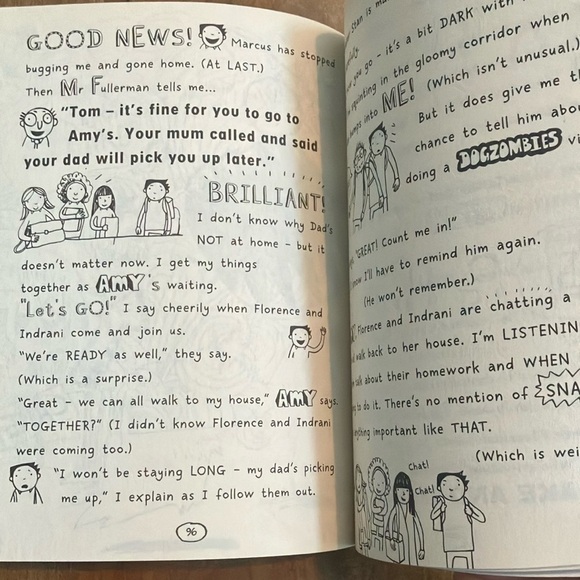 GOOD NEWS! Marcus has stopped
bugging me and gone home. (At LAST.)
Then Mr Fullerman tells me...
"Tom – it's fine for you to go to
Amy's. Your mum called and said
your dad will pick you up later."
BRILLIANT!
I don't know why Dad's
NOT at home – but it
doesn't matter now. I get my things
together as AMY's waiting.
"Let's GO!" I say cheerily when Florence and
Indrani come and join us.
"We're READY as well," they say.
(Which is a surprise.)
"Great – we can all walk to my house," AMY says.
"TOGETHER?" (I didn't know Florence and Indrani
were coming too.)
"I won't be staying LONG – my dad's picking
me up," I explain as I follow them out.
96
Stan is
you go – it's a bit DARK with
squinting in the gloomy corridor when
into ME! (Which isn't unusual.)
But it does give me
chance to tell him
doing a DOGZOMBIES
"GREAT! Count me in!"
I'll have to remind him again.
(He won't remember.)
Florence and Indrani are chatting a
walk back to her house. I'm
talk about their homework and WHEN
to do it. There's no mention of
important like THAT.
(Which is
Chat!
Chat!